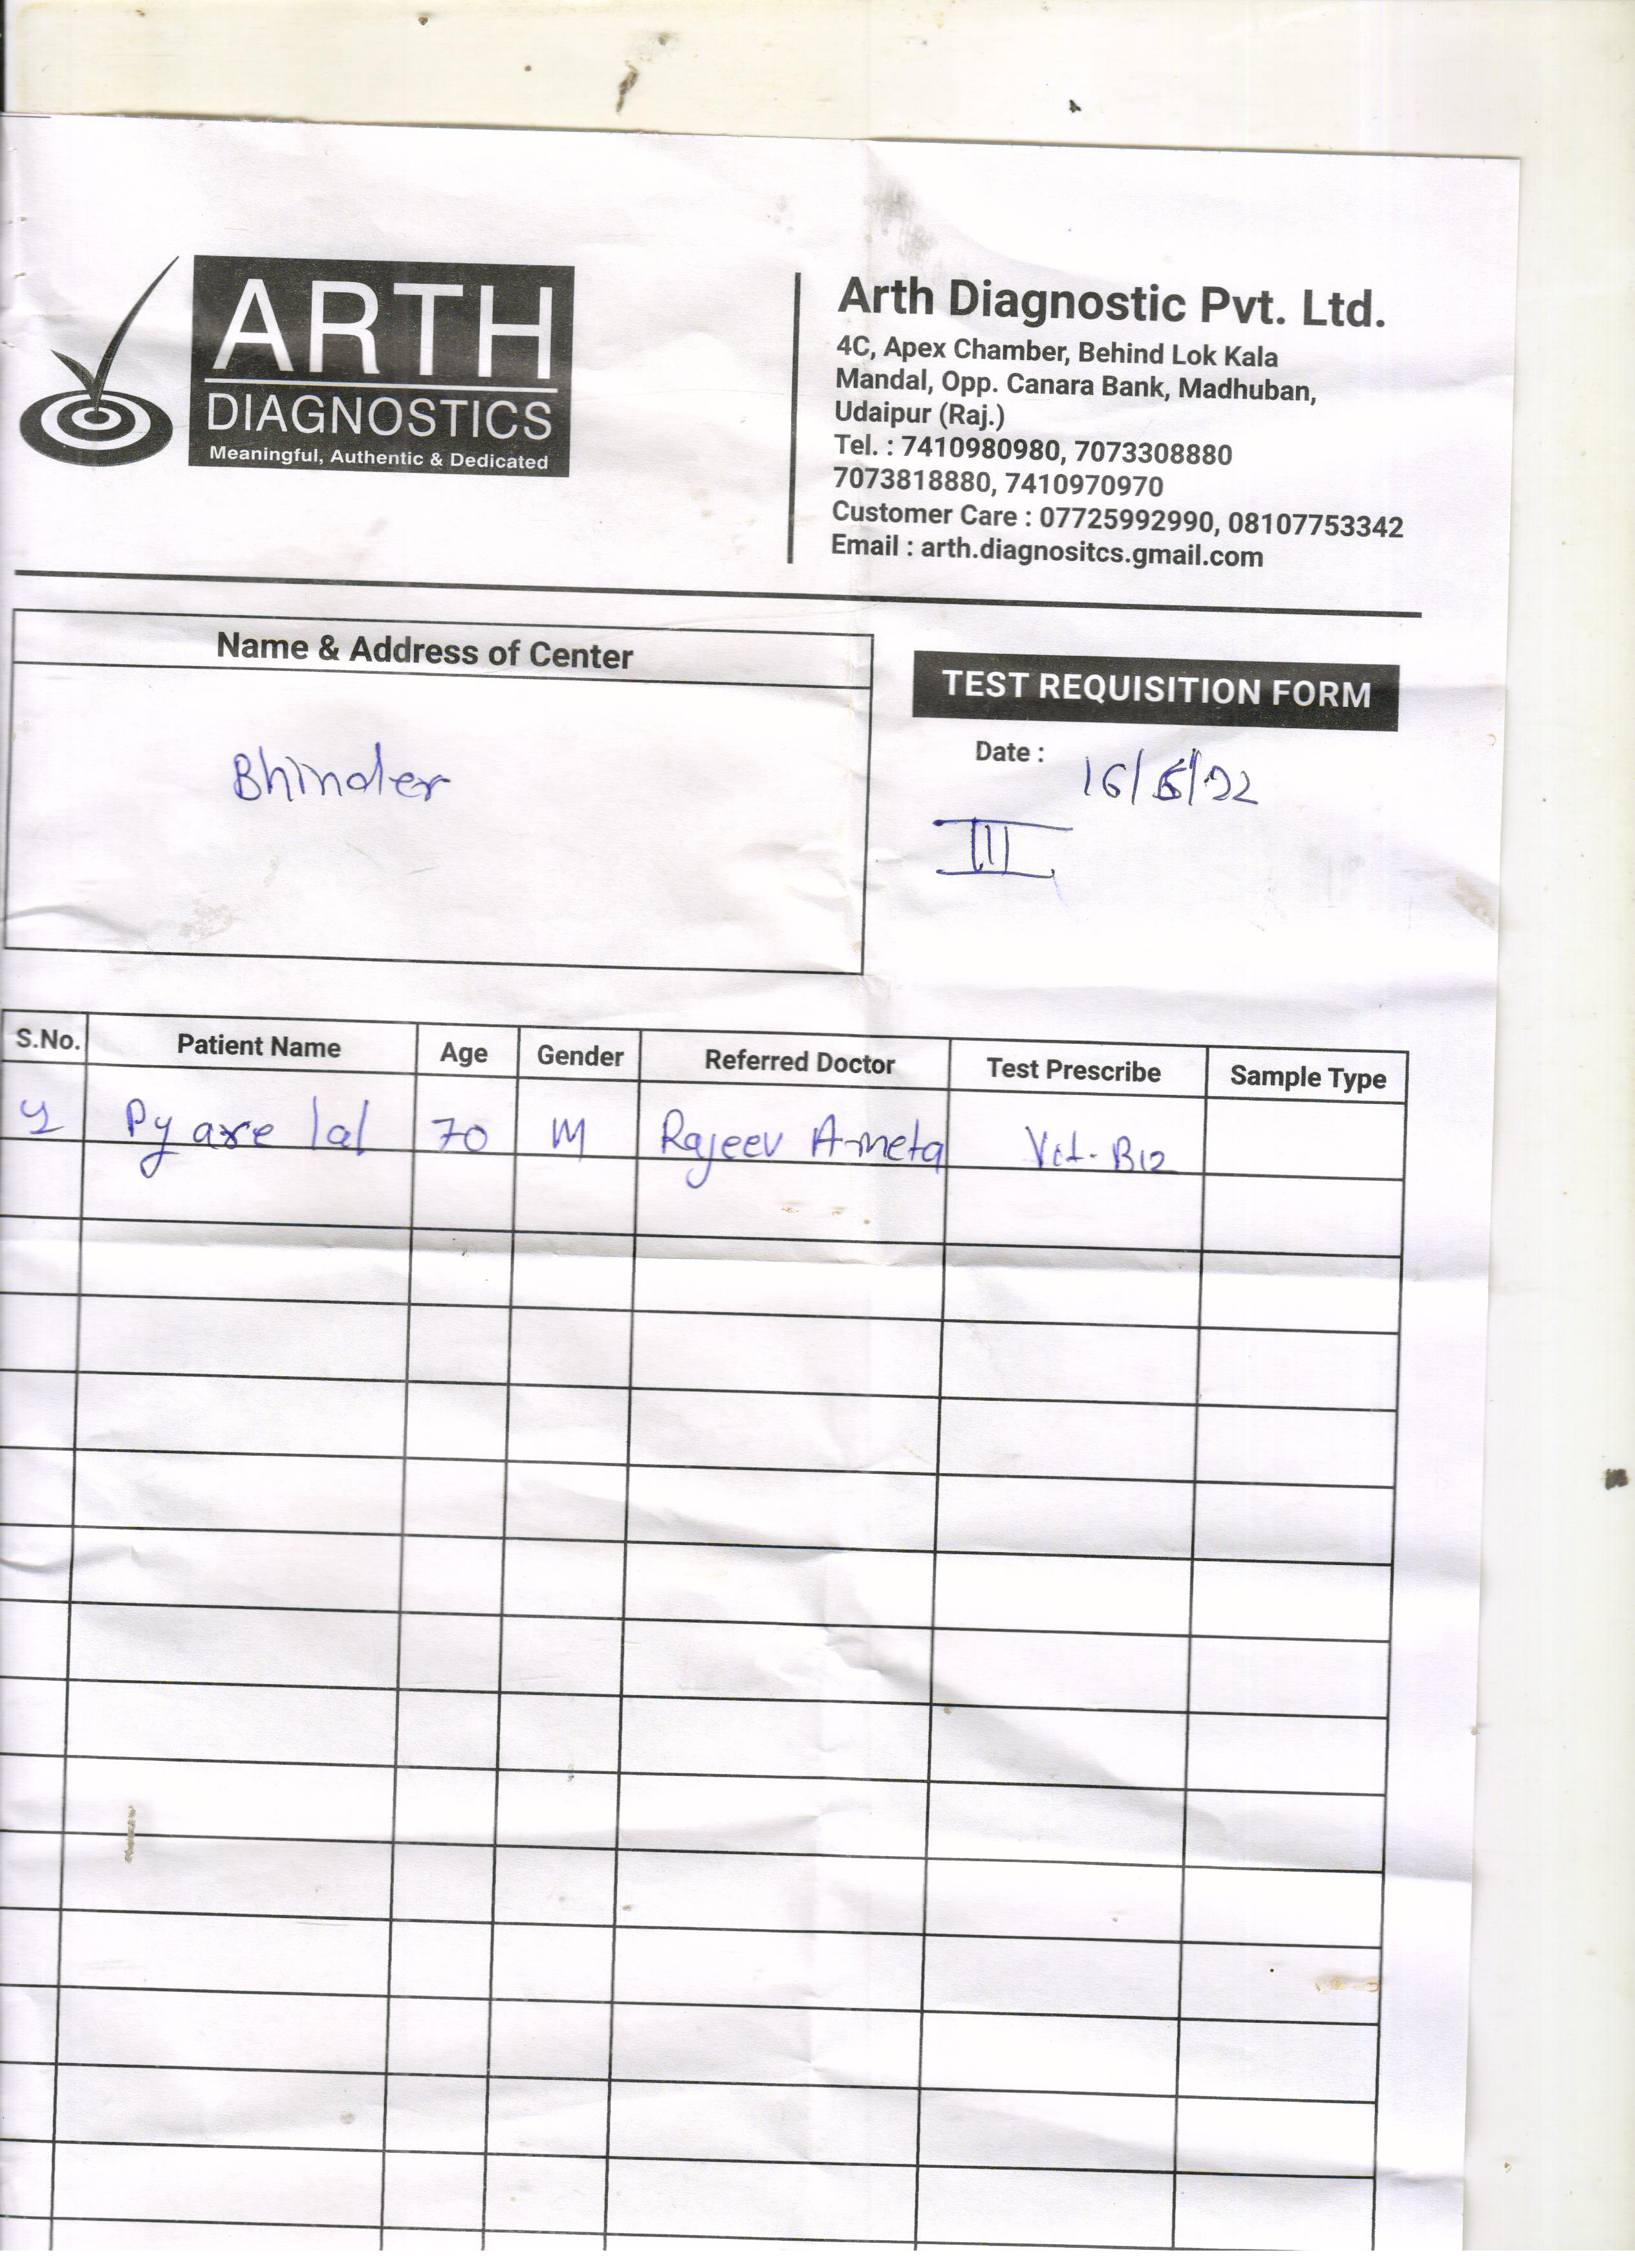 ARTH
DIAGNOSTICS
Meaningful, Authentic & Dedicated
Arth Diagnostic Pvt. Ltd.
4C, Apex Chamber, Behind Lok Kala
Mandal, Opp. Canara Bank, Madhuban,
Udaipur (Raj.)
Tel. : 7410980980, 7073308880
7073818880, 7410970970
Customer Care : 07725992990, 08107753342
Email : arth.diagnositcs.gmail.com
Name & Address of Center
Bhinder
TEST REQUISITION FORM
Date : 16/5/22
III
S.No. Patient Name Age Gender Referred Doctor Test Prescribe Sample Type
Pyare lal 70 M Rajeev Ameta Vit-B12